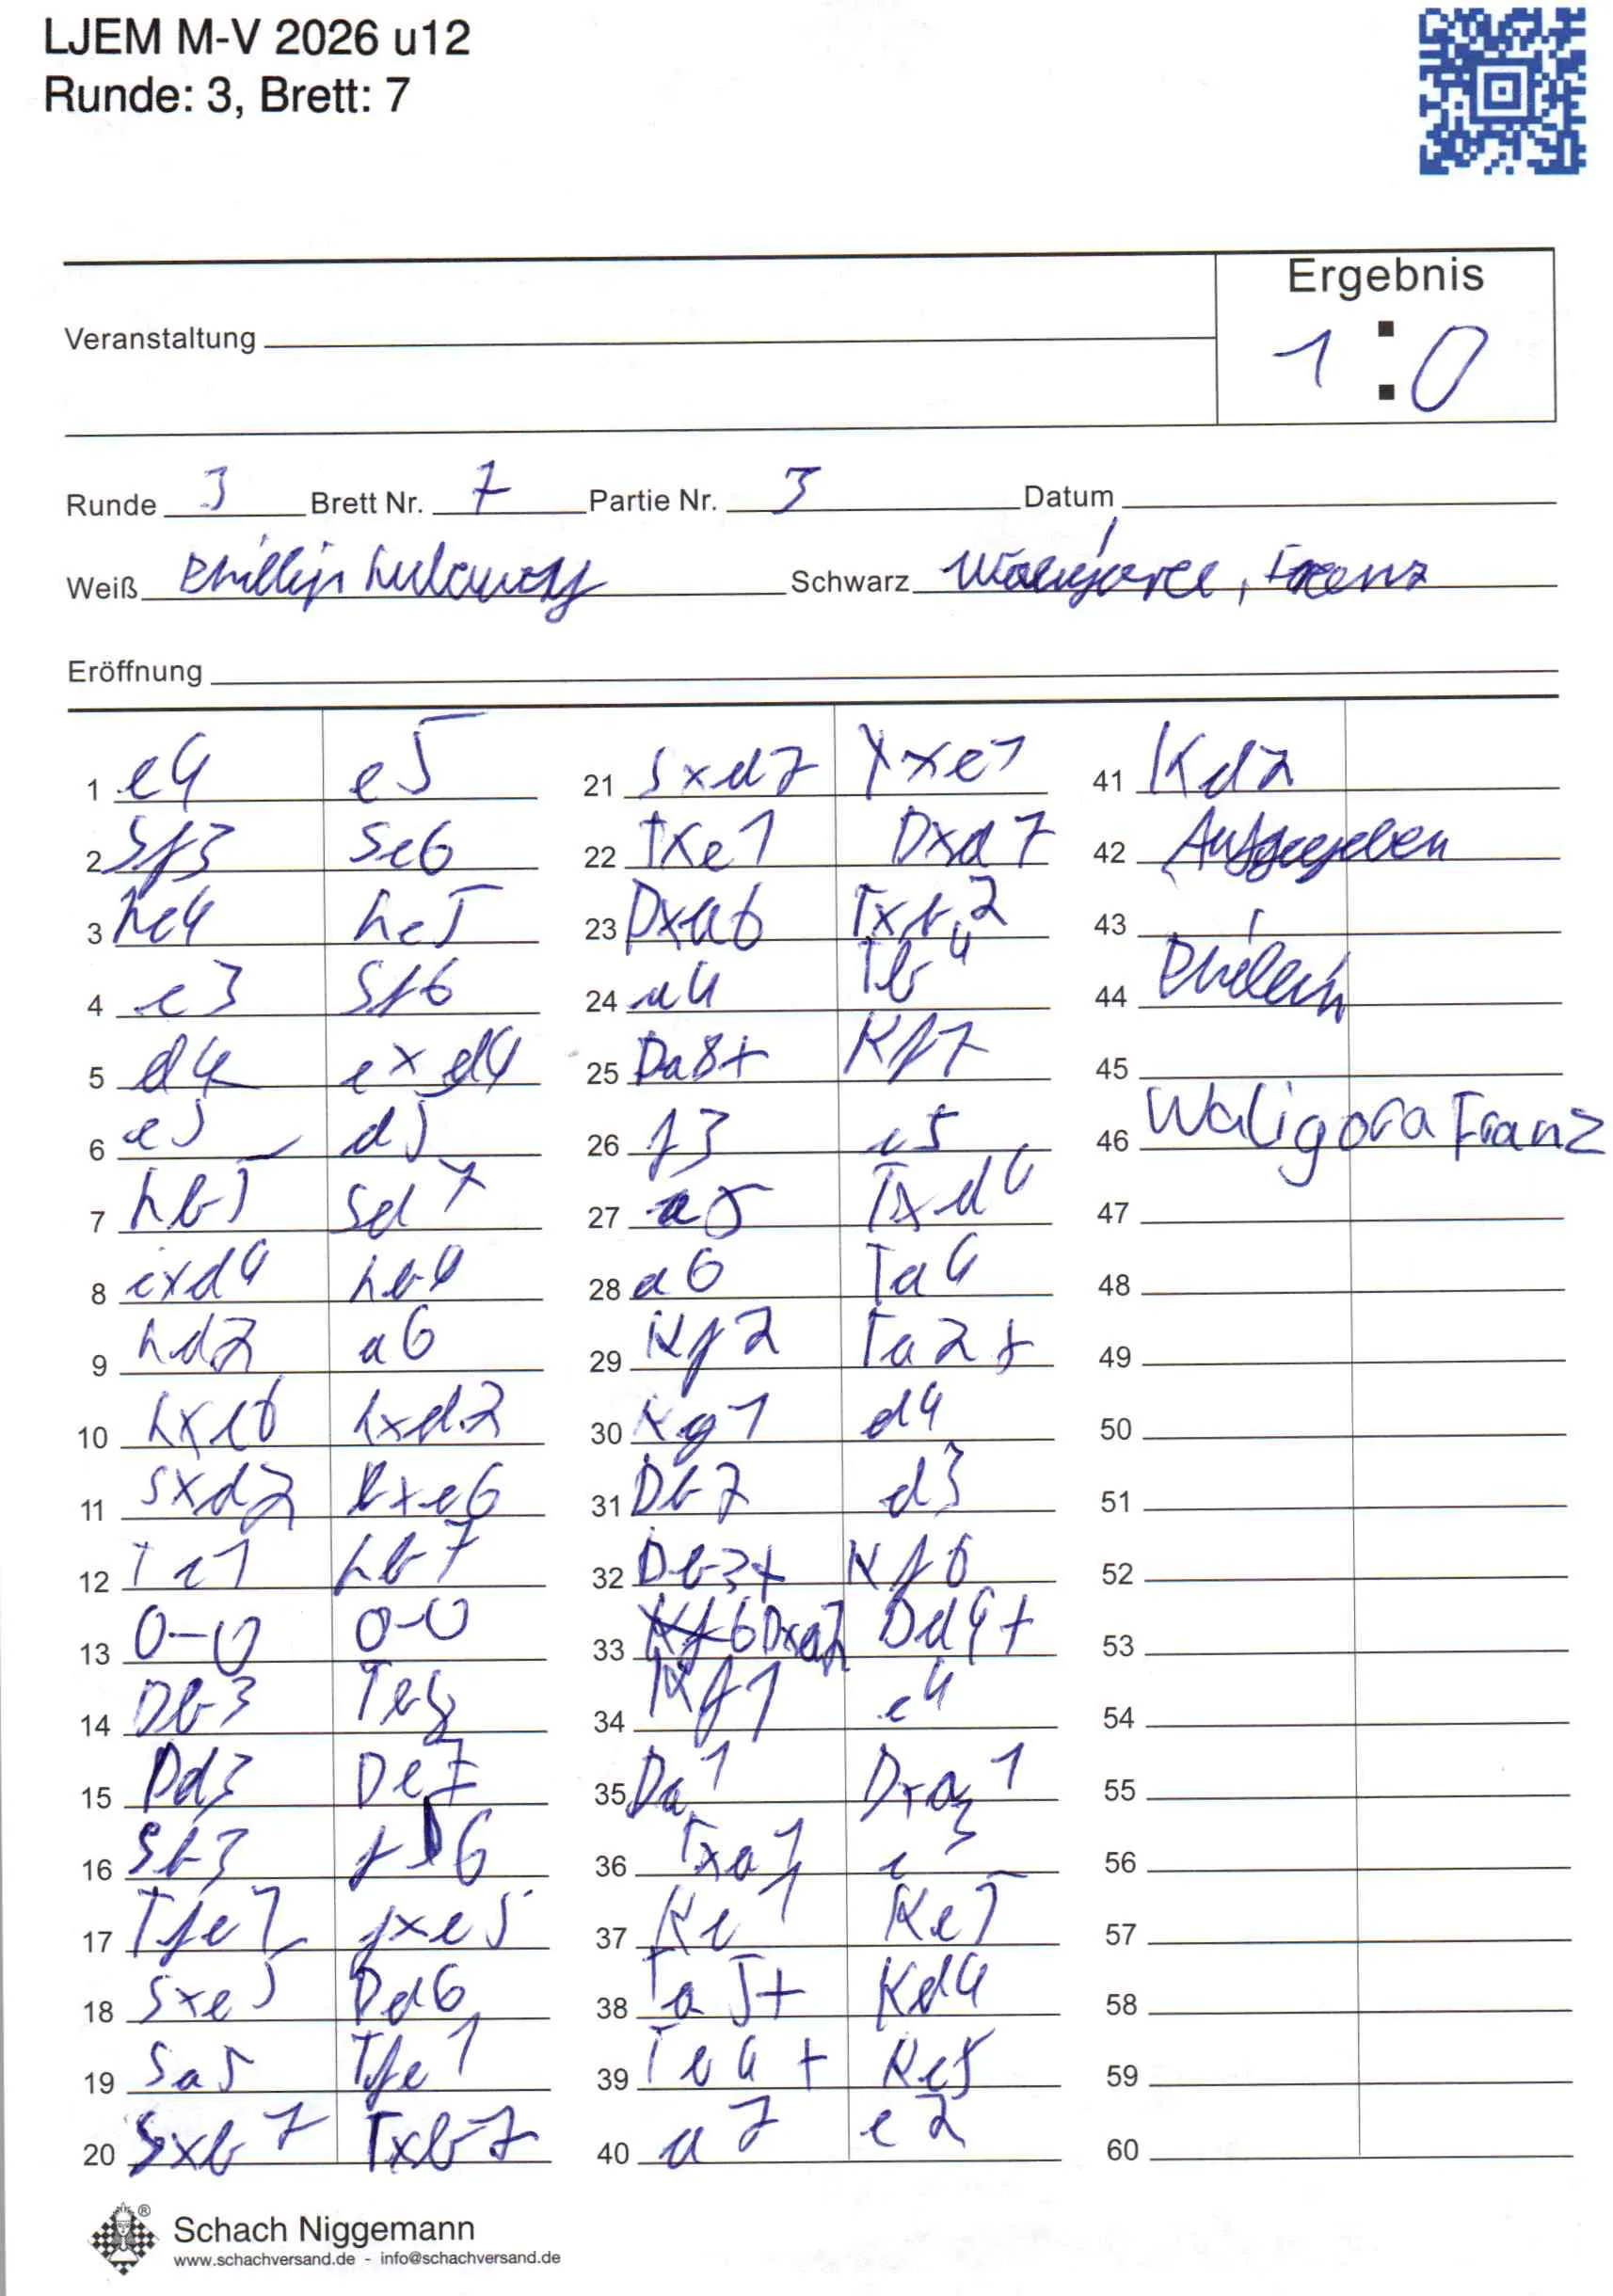 LJEM M-V 2026 u12
Runde: 3, Brett: 7
Ergebnis
1 : 0
Veranstaltung
Runde 3 Brett Nr. 7 Partie Nr. 3 Datum
Weiß Phillip Schwarz Waligora, Franz
Eröffnung
1 e4 e5
2 Sf3 Sc6
3 Lc4 Lc5
4 c3 Sf6
5 d4 exd4
6 e5 d5
7 Lb5 Sd7
8 cxd4 Lb4
9 Ld2 a6
10 Lxc6 Lxd2
11 Sxd2 bxc6
12 Tc1 Lb7
13 0-0 0-0
14 Db3 Tb8
15 Dd3 De7
16 Sb3 f6
17 Tfe1 fxe5
18 Sxe5 Dd6
19 Sa5 Tfe1
20 Sxb7 Txb7
21 Sxd7 Txe1
22 Txe1 Dxd7
23 Dxa6 Txb2
24 a4 Tb4
25 Da8+ Kf7
26 f3 c5
27 a5 Txd4
28 a6 Ta4
29 Kf2 Ta2+
30 Kg1 d4
31 Db7 d3
32 Db3+ Kf6
33 Dxa2 Dd4+
34 Kf1 c4
35 Da1 Dxa1
36 Txa1 c3
37 Ke1 Ke5
38 Ta5+ Kd4
39 Ta4+ Kc5
40 a7 c2
41 Kd2
42 Aufgegeben
43
44
45
46 Waligora Franz
47
48
49
50
51
52
53
54
55
56
57
58
59
60
Schach Niggemann
www.schachversand.de - info@schachversand.de